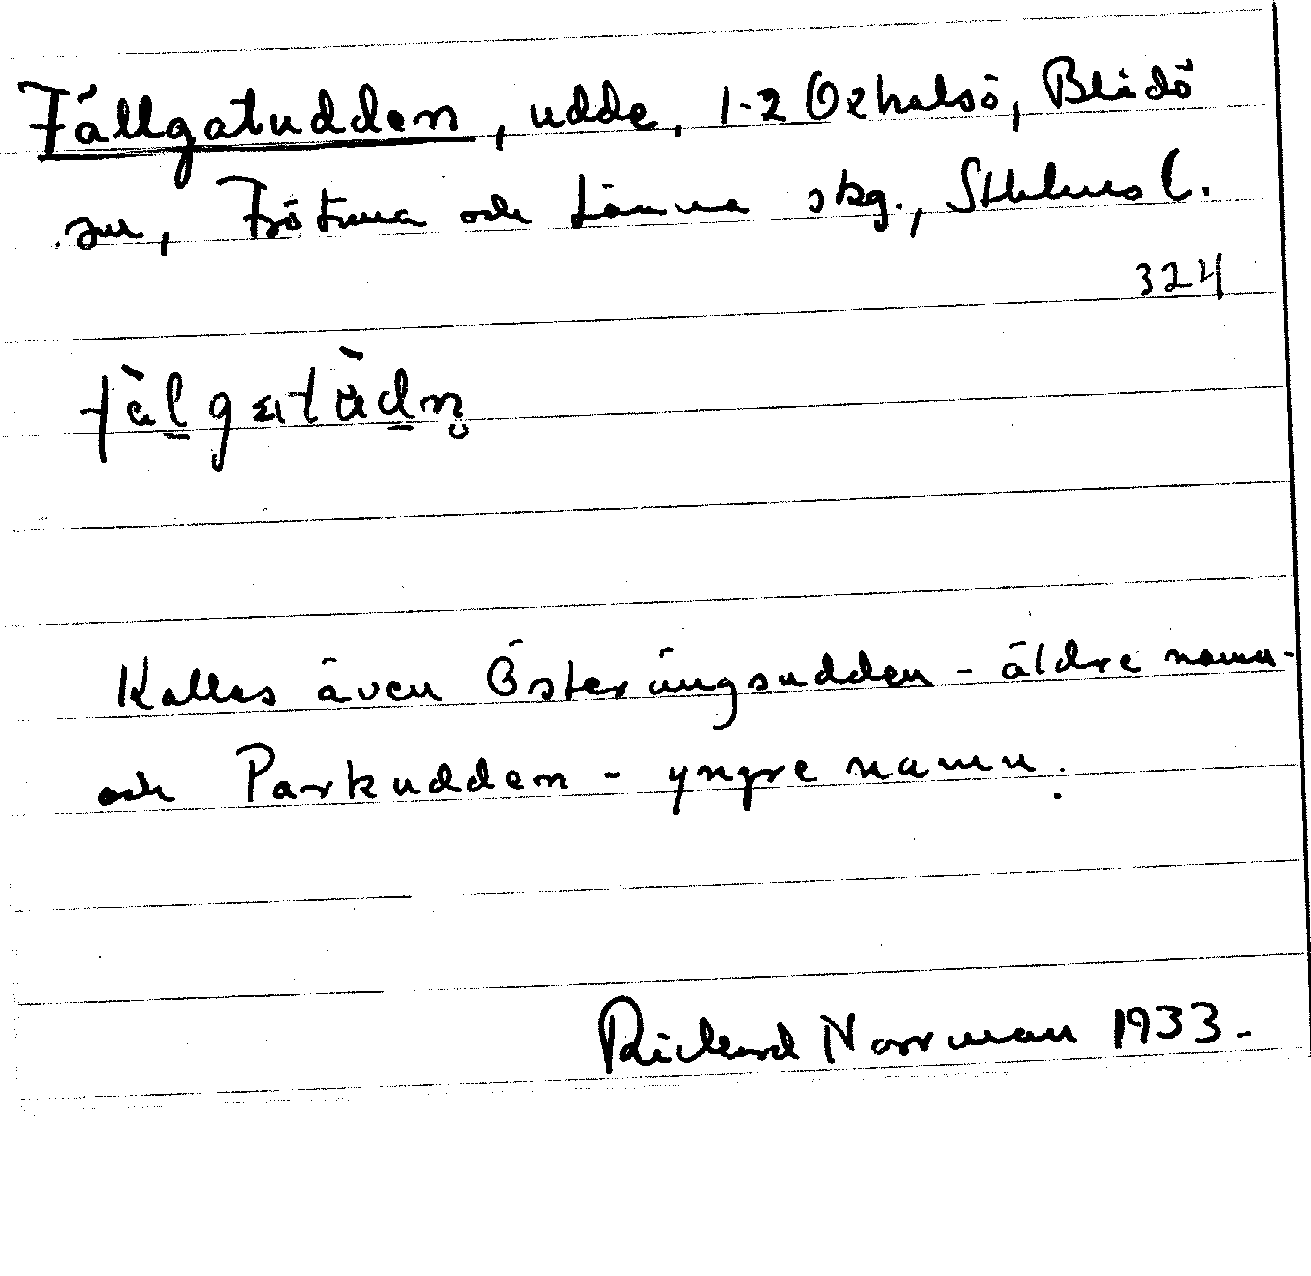 Fällgatudden, udde, 1-2 Oxhalsö, Blidö
sn, Frötuna och Länna skg., Sthlms l.
324
fälgatùdn̥
Kallas även Österängsudden - äldre namn -
och Parkudden - yngre namn.
Rickard Norrman 1933.